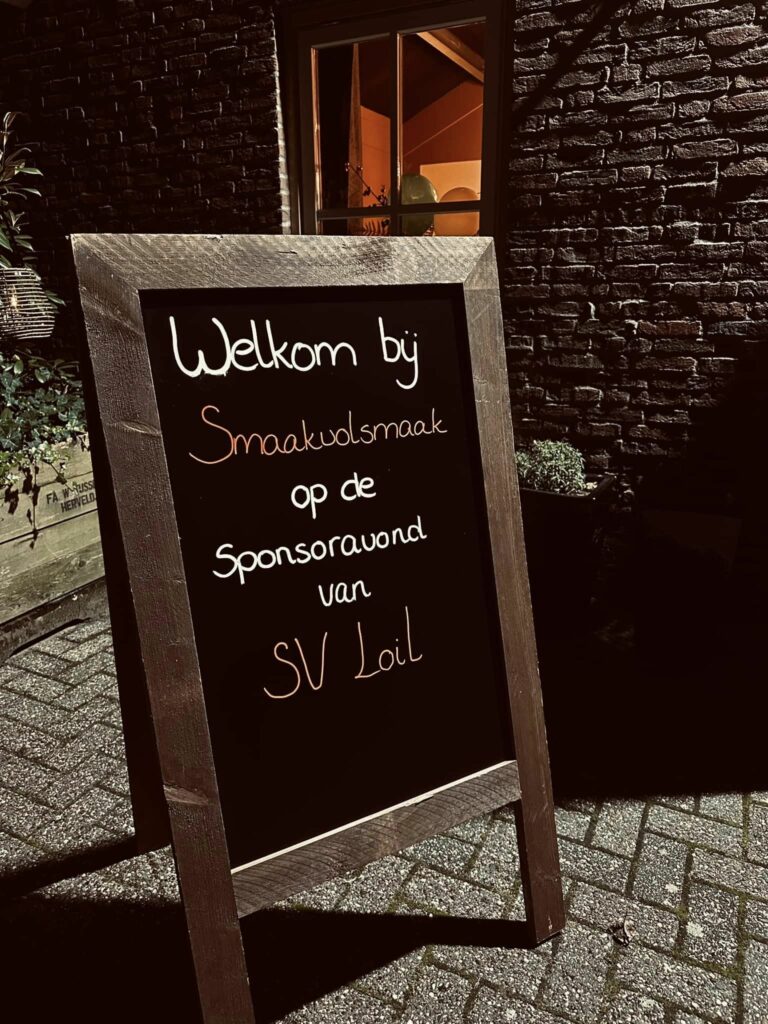 Welkom bij
Smaakvolsmaak
op de
Sponsoravond
van
SV Loil
FA. W
HERVELD